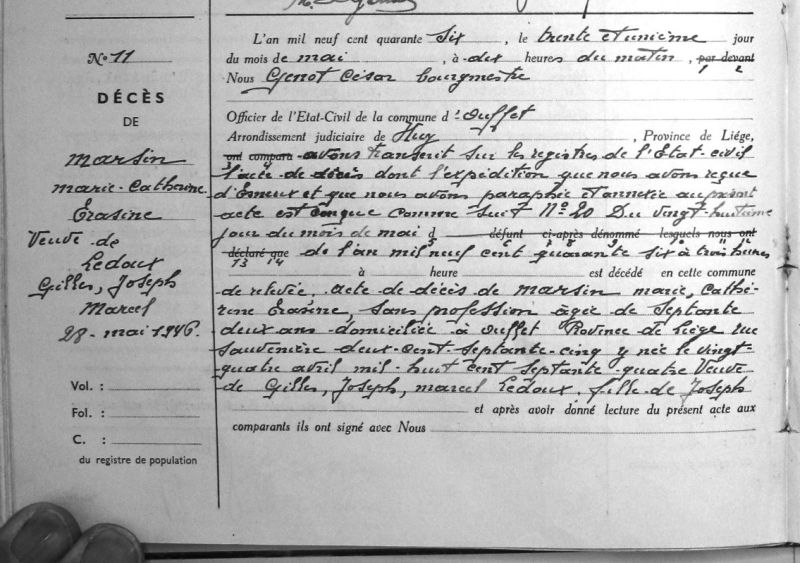 N° 11
DÉCÈS
DE
Marsin
Marie-Catherine
Erasine
Veuve de
Ledoux
Gilles, Joseph
Marcel
28-mai 1946.
Vol. :
Fol. :
C. :
du registre de population
L'an mil neuf cent quarante Six, le trente et unième jour
du mois de mai, à dix heures du matin, par devant
1 2
Nous Genot César bourgmestre
Officier de l'Etat-Civil de la commune d'Ouffet
Arrondissement judiciaire de Huy, Province de Liége,
ont comparu avons transcrit sur les registres de l'Etat-civil
l'acte de décès dont l'expédition que nous avons reçue
d'Esneux et que nous avons paraphée et annexée au présent
acte est conçue comme suit N° 20 Du vingt-huitième
jour du mois de mai d défunt ci-après dénommé lesquels nous ont
déclaré que de l'an mil neuf cent quarante six à trois heures
13 14
à heure est décédé en cette commune
de relevée, acte de décès de Marsin Marie, Cathé-
rine Erasine, sans profession âgée de Septante
deux ans domiciliée à Ouffet Province de Liège rue
Sauvenière deux-cent-septante-cinq y née le vingt-
quatre avril mil-huit cent septante-quatre Veuve
de Gilles, Joseph, Marcel Ledoux, fille de Joseph
et après avoir donné lecture du présent acte aux
comparants ils ont signé avec Nous